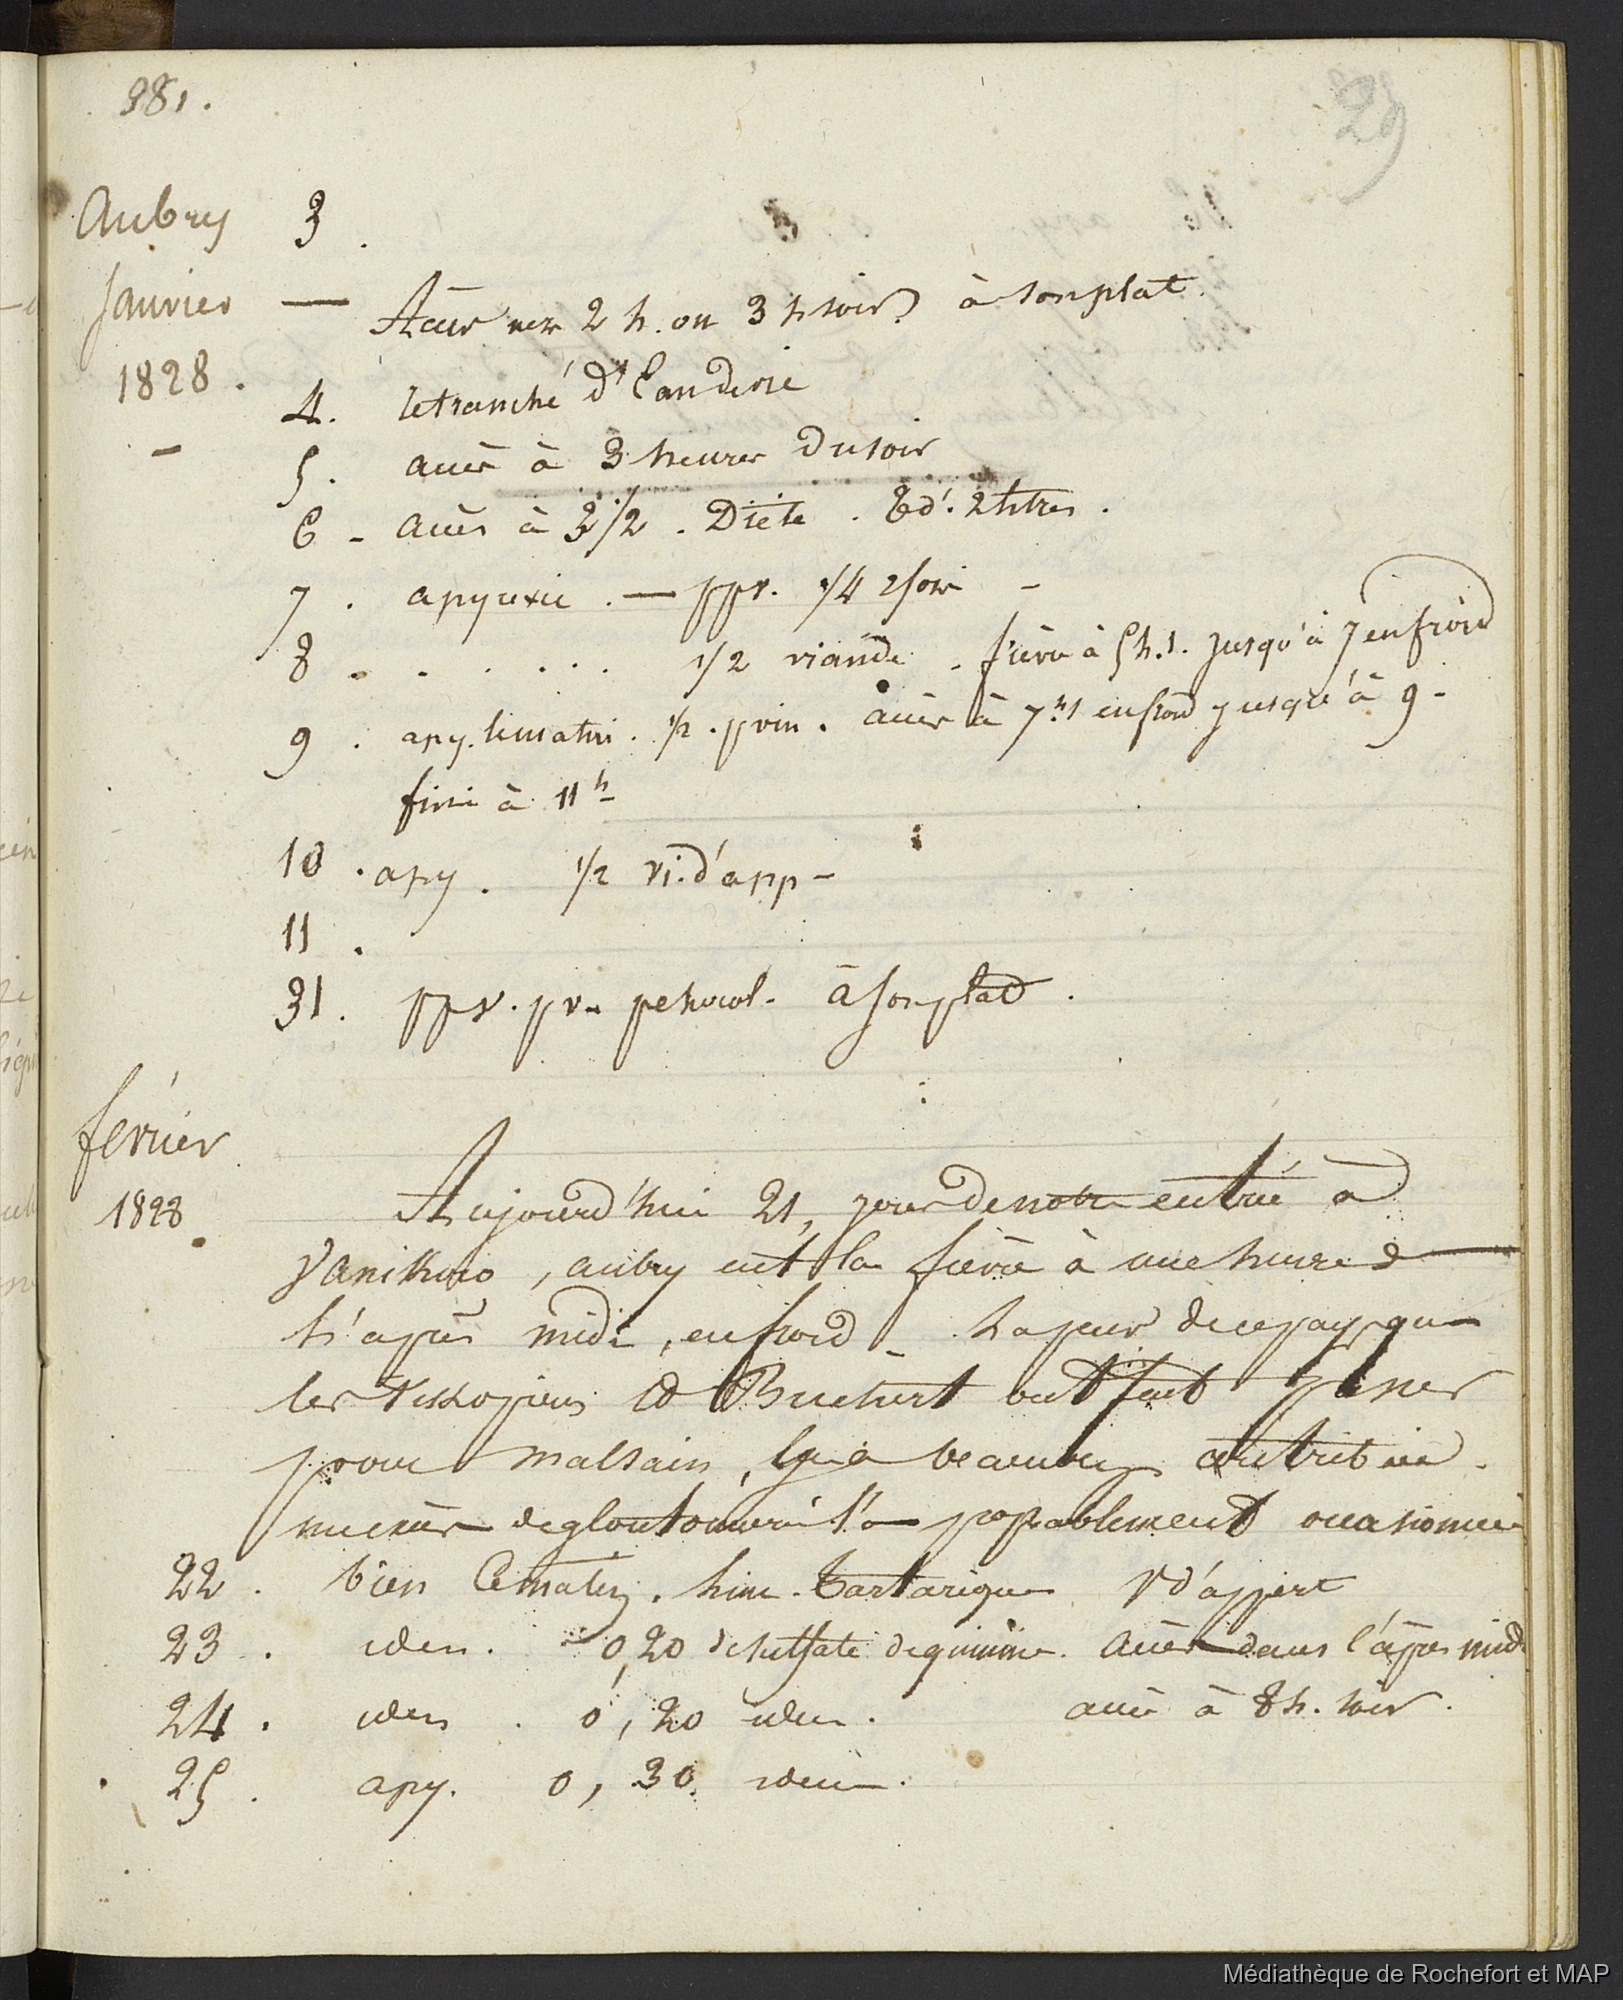 381.
29
Aubry
Janvier
1828.
3.
— Accès vers 2 h. ou 3 h soir. à son plat.
4. retranché d'Eau de vie
5. accès à 3 heures du soir
6 - accès à 3 1/2 . Diète . td. 2 litres .
7 . apyrexie . — ppr. 1/4 2 fois -
8 . . . . . . 1/2 viande . fièvre à 5 h. s. jusqu'à 7 en froid
9 . apy. le matin . 1/2 . p vin . accès à 7 h s en froid jusqu'à 9 -
fini à 11 h
10 . apy . 1/2 vi. d'app -
11 .
31 . ppr. pv. à son plat .
février
1828
Aujourd'hui 21, jour de notre entrée à
Vanikoro , aubry eut la fièvre à une heure de
l'après midi , en froid . La peur de ce pays que
les et Buchert ont fait passer
pour malsain , y a beaucoup contribué .
un excès de gloutonnerie l'a probablement occasionnée
22 . bien le matin . lim . tartarique v d'appert
23 . idem . - 0,20 de sulfate de quinine . accès dans l'après midi
24 . idem . 0,20 idem . accès à 8 h. soir .
25 . apy . 0,30 idem .
Médiathèque de Rochefort et MAP